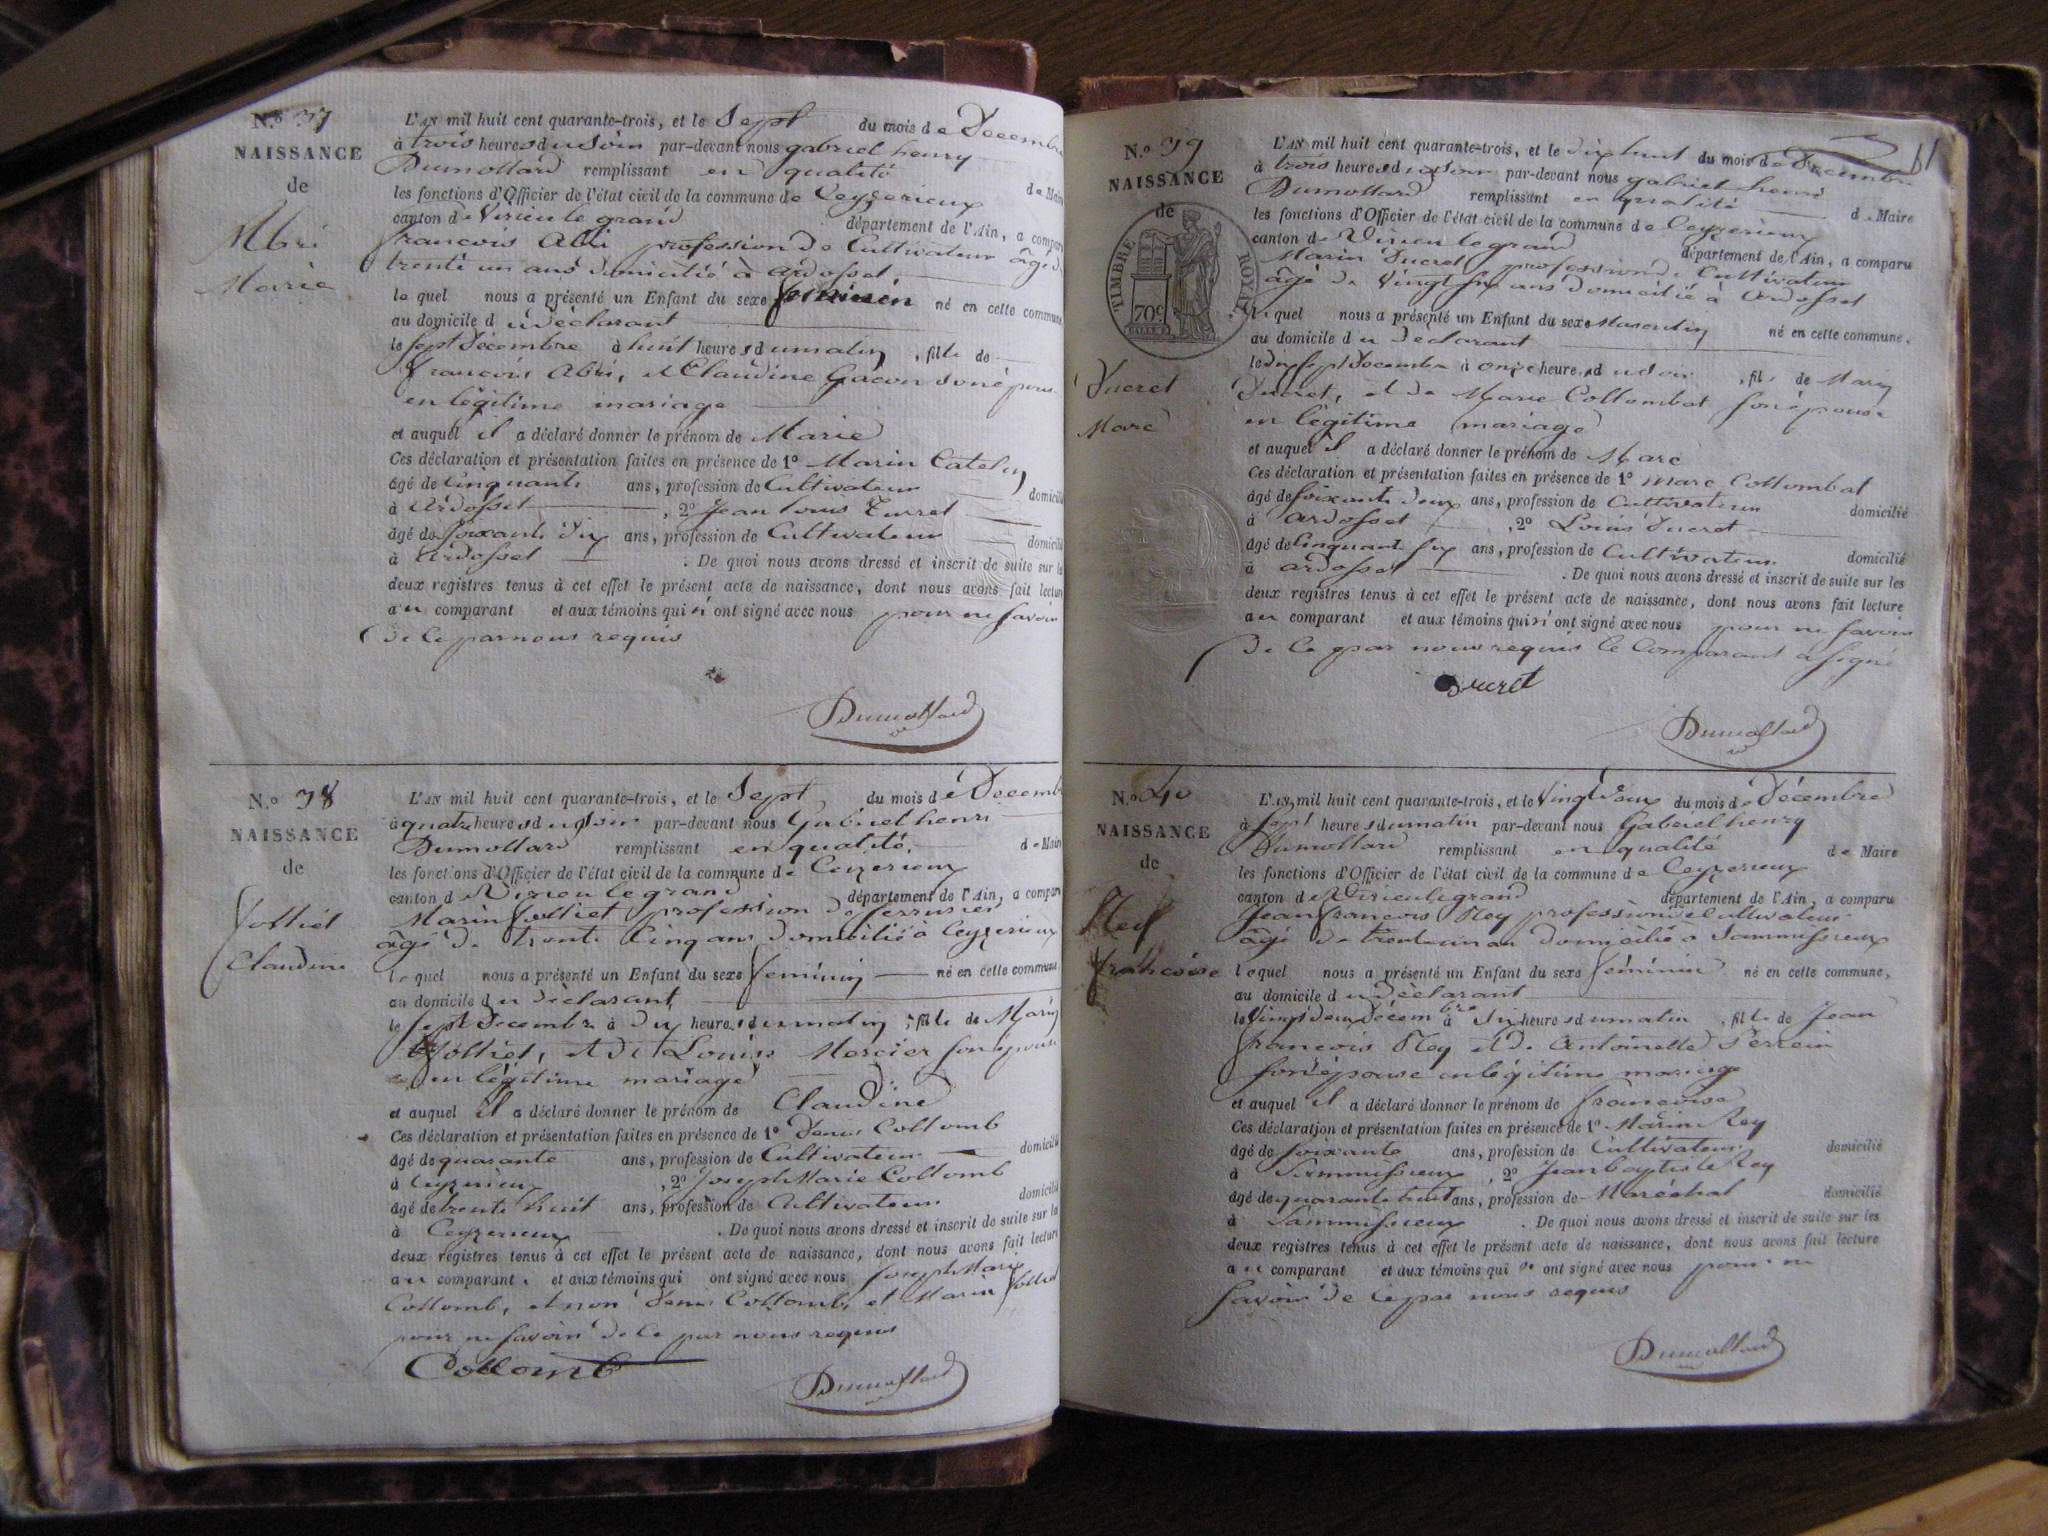 N.o 37
NAISSANCE
de
Abri
Marie
L'AN mil huit cent quarante-trois, et le Sept du mois de Decembre
à trois heures du soir par-devant nous gabriel henry
Dumollard remplissant en qualité de Maire
les fonctions d'Officier de l'état civil de la commune de Ceyzerieux
canton de Virieu le grand département de l'Ain, a comparu
francois Abri profession de Cultivateur âgé de
trente un ans domicilié à ardosset
lequel nous a présenté un Enfant du sexe feminin né en cette commune
au domicile du déclarant
le sept décembre à huit heures du matin, fille de
francois Abri, et Claudine Gacon son épouse
en légitime mariage
et auquel il a déclaré donner le prénom de Marie
Ces déclaration et présentation faites en présence de 1° Marin Catelin
âgé de Cinquante ans, profession de Cultivateur domicilié
à ardosset, 2° Jean louis Turrel
âgé de soixante dix ans, profession de Cultivateur domicilié
à ardosset. De quoi nous avons dressé et inscrit de suite sur les
deux registres tenus à cet effet le présent acte de naissance, dont nous avons fait lecture
au comparant et aux témoins qui n'ont signé avec nous pour ne savoir
de ce par nous requis
Dumollard
N.o 38
NAISSANCE
de
folliet
Claudine
L'AN mil huit cent quarante-trois, et le Sept du mois de Decembre
à quatre heures du soir par-devant nous Gabriel henri
Dumollard remplissant en qualité de Maire
les fonctions d'Officier de l'état civil de la commune de Ceyzerieux
canton de Virieu le grand département de l'Ain, a comparu
Marin folliet profession de serrurier
âgé de trente Cinq ans domicilié à Ceyzerieux
lequel nous a présenté un Enfant du sexe feminin né en cette commune
au domicile du déclarant
le sept decembre à dix heures du matin, fille de Marin
folliet, et de Louise Mercier son épouse
en légitime mariage
et auquel il a déclaré donner le prénom de Claudine
Ces déclaration et présentation faites en présence de 1° Denis Collomb
âgé de quarante ans, profession de Cultivateur domicilié
à Ceyzerieux, 2° Joseph Marie Collomb
âgé de trente huit ans, profession de Cultivateur domicilié
à Ceyzerieux. De quoi nous avons dressé et inscrit de suite sur les
deux registres tenus à cet effet le présent acte de naissance, dont nous avons fait lecture
au comparant, et aux témoins qui ont signé avec nous Joseph Marie
Collomb, et non Denis Collomb, et Marin folliet
pour ne savoir de ce par nous requis
Collomb
Dumollard
11
N.o 39
NAISSANCE
de
TIMBRE ROYAL
70c
Ducret
Marc
L'AN mil huit cent quarante-trois, et le dix huit du mois de Decembre
à trois heures du soir par-devant nous gabriel henri
Dumollard remplissant en qualité de Maire
les fonctions d'Officier de l'état civil de la commune de Ceyzerieux
canton de Virieu le grand département de l'Ain, a comparu
Marin Ducret profession de Cultivateur
âgé de Vingt six ans domicilié à Ardosset
lequel nous a présenté un Enfant du sexe Masculin né en cette commune,
au domicile du Declarant
le dix sept Decembre à onze heures du soir, fils de Marin
Ducret, et de Marie Collombat son épouse
en légitime mariage
et auquel il a déclaré donner le prénom de Marc
Ces déclaration et présentation faites en présence de 1° Marc Collombat
âgé de soixante deux ans, profession de Cultivateur domicilié
à ardosset, 2° Louis Ducret
âgé de Cinquante six ans, profession de Cultivateur domicilié
à ardosset. De quoi nous avons dressé et inscrit de suite sur les
deux registres tenus à cet effet le présent acte de naissance, dont nous avons fait lecture
au comparant et aux témoins qui n'ont signé avec nous pour ne savoir
de ce par nous requis le Comparant a signé
Ducret
Dumollard
N.o 40
NAISSANCE
de
Rey
francoise
L'AN mil huit cent quarante-trois, et le Vingt Deux du mois de Décembre
à sept heures du matin par-devant nous Gabriel henry
Dumollard remplissant en qualité de Maire
les fonctions d'Officier de l'état civil de la commune de Ceyzerieux
canton de Virieu le grand département de l'Ain, a comparu
Jean francois Rey profession de Cultivateur
âgé de trente un an domicilié à Sammissieux
lequel nous a présenté un Enfant du sexe féminin né en cette commune,
au domicile du déclarant
le Vingt deux décembre à six heures du matin, fille de Jean
francois Rey et de Antoinette Perrein
son épouse en légitime mariage
et auquel il a déclaré donner le prénom de francoise
Ces déclaration et présentation faites en présence de 1° Marin Rey
âgé de soixante ans, profession de Cultivateur domicilié
à Sammissieux, 2° Jean baptiste Rey
âgé de quarante huit ans, profession de Maréchal domicilié
à Sammissieux. De quoi nous avons dressé et inscrit de suite sur les
deux registres tenus à cet effet le présent acte de naissance, dont nous avons fait lecture
au comparant et aux témoins qui n'ont signé avec nous pour ne
savoir de ce par nous requis
Dumollard